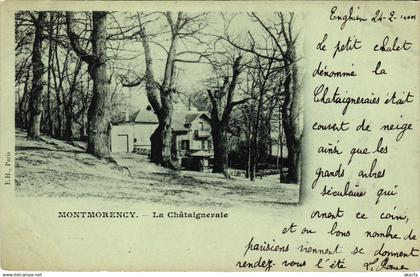 Enghien 24-2-1901
Le petit chalet
dénommé la
Chataigneraies était
couvert de neige
ainsi que les
grands arbres
séculaire qui
ornent ce coin,
et ou bons nombre de
parisiens viennent se donnent
rendez vous l'été
E.H., Paris
MONTMORENCY. — La Châtaigneraie